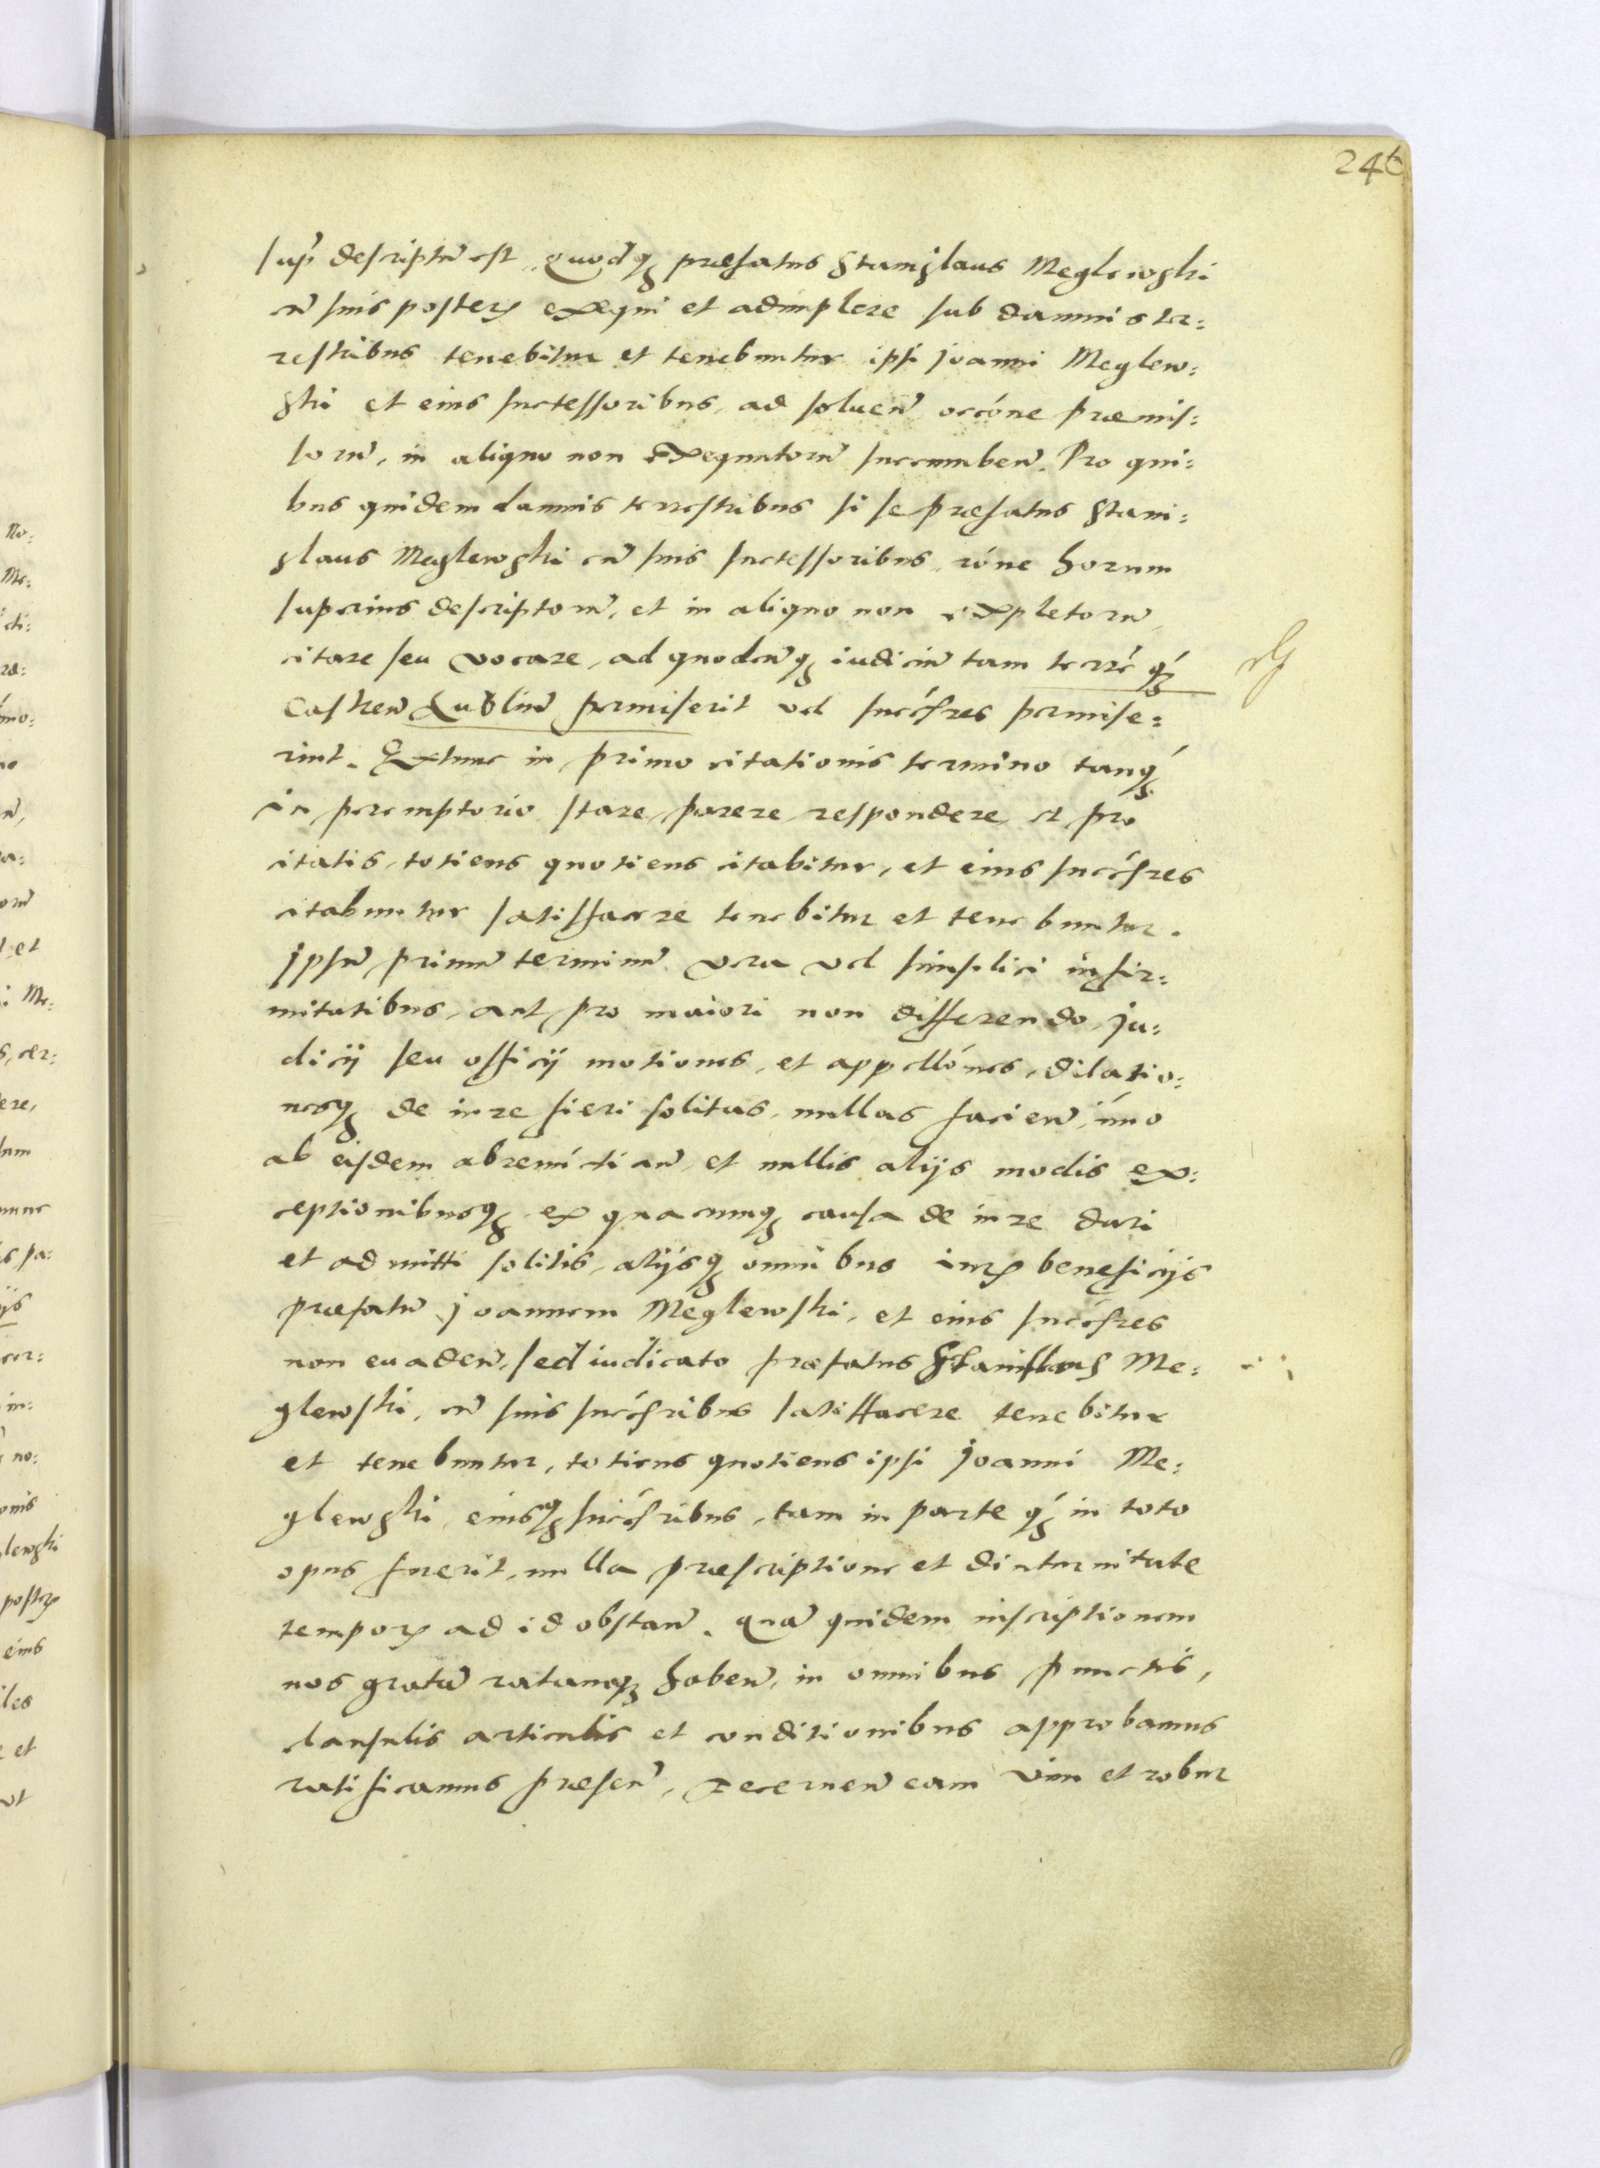 246
sup̄ descriptū est, quodq̨ præfatus Stanislaus Meglewski
cū suis posteris exequi et adimplere sub damnis ter:
restribus tenebitur et tenebuntur ipsi Joanni Meglew:
ski et eius successoribus, ad soluen̄ occóne præmis:
sorū, in aliquo non exequutorū succumben̄. Pro qui:
bus quidem damnis terrestribus si se præfatus Stani:
slaus Meglewski cū suis successoribus, róne horum
superius descriptorū, et in aliquo non expletorū,
citare seu vocare, ad quodcūq̨ iudiciū tam terré q̨́
Castren̄ Lublin̄ permiserit vel succ̄sres permise:
rint. Extunc in primo citationis termino tanq̨́
in peremptorio stare, parere, respondere, et pro
citatis, totiens quotiens citabitur, et eius succ̄sres
citabuntur satisfacere tenebitur et tenebuntur.
Jpsū primū terminū vera vel simplici infir:
mitatibus, aut pro maiori non differendo, Ju:
dicij seu officij motiones, et appellónes, dilatio:
nesq̨ de iure fieri solitas, nullas facien̄, imo
ab eisdem abrenūctian̄, et nullis alijs modis ex:
ceptionibusq̨ ex quacunq̨ causa de iure dari
et admitti solitis, alijsq̨ omnibus iuris beneficijs
præfatū Joannem Meglewski, et eius succ̄sres
non euaden̄, sed iudicato præfatus Stanislaus Me:
glewski, cū suis succ̄sribus satisfacere tenebitur
et tenebuntur, totiens quotiens ipsi Joanni Me:
glewski, eiusq̨ succ̄sribus, tam in parte q̨́ in toto
opus fuerit, nulla præscriptione et diuturnitate
temporis ad id obstan̄. Quā quidem inscriptionem
nos gratā ratamq̨ haben̄, in omnibus punctis,
clausulis articulis et conditionibus approbamus
ratificamus præsen̄, decernen̄ eam vim et robur